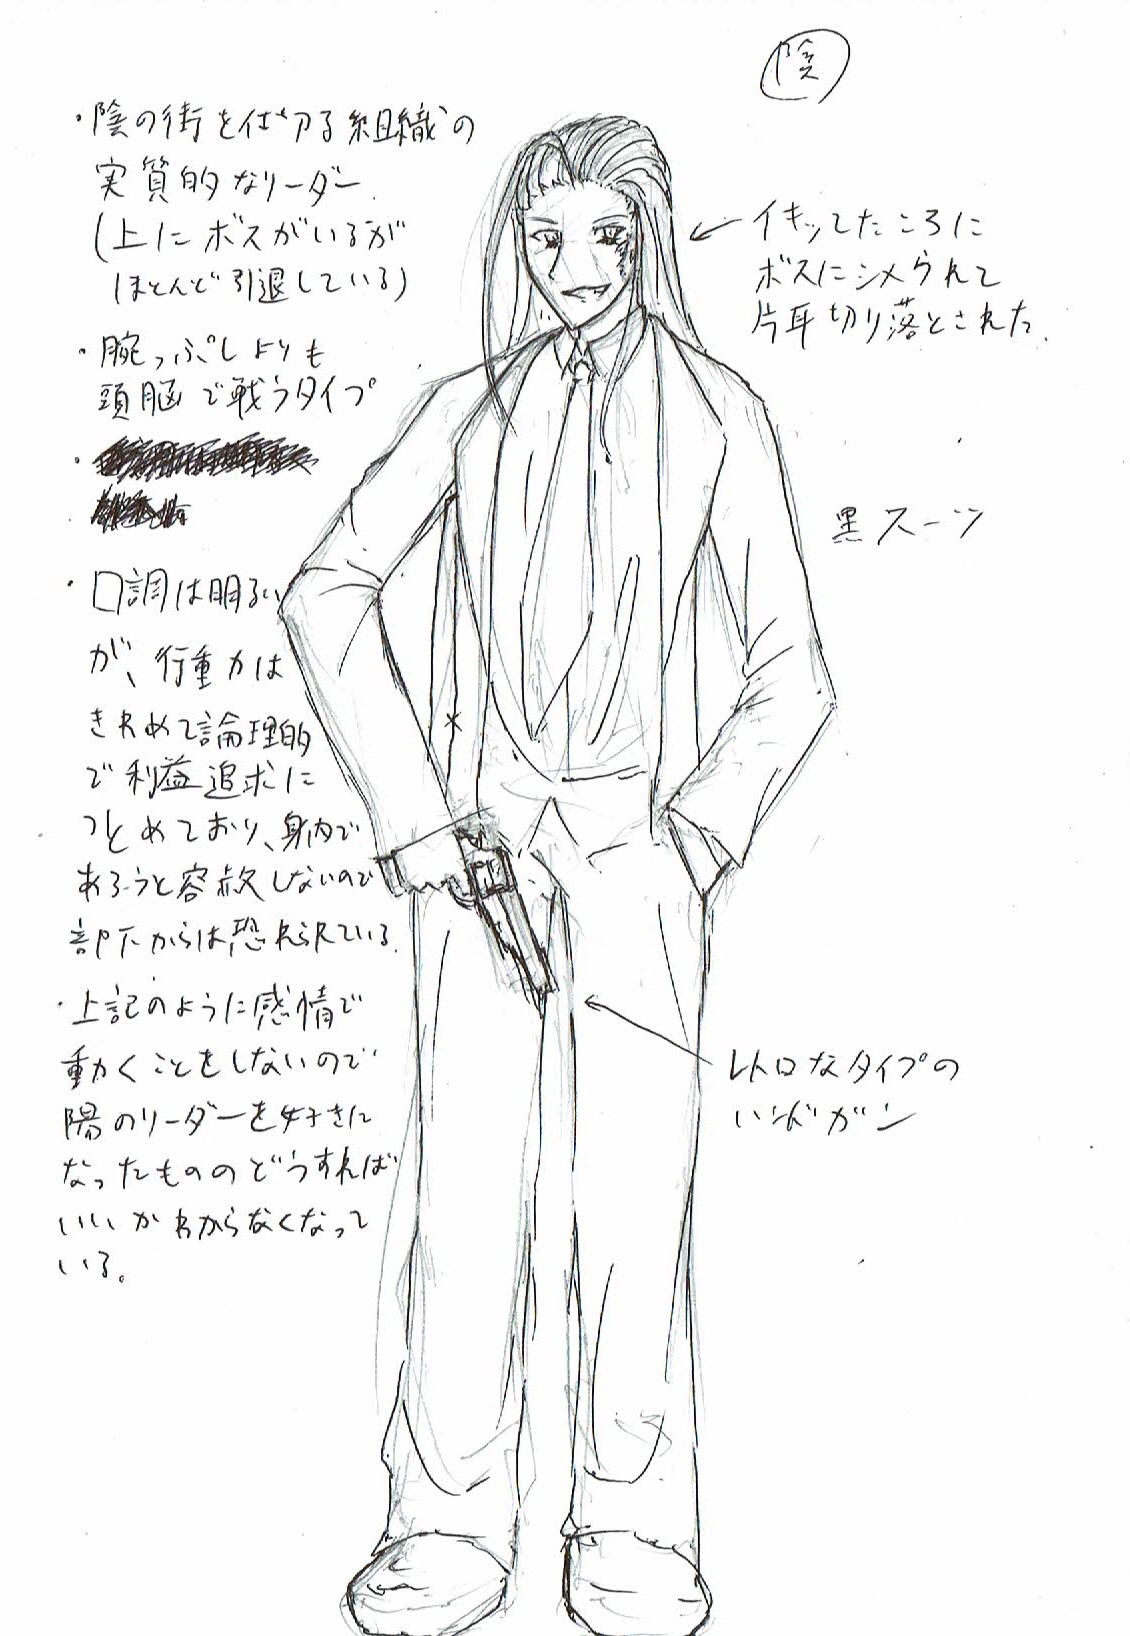 陰
・陰の街を仕切る組織の
実質的なリーダー
(上にボスがいるが
ほとんど引退している)
・腕っぷしよりも
頭脳で戦うタイプ
・口調は明るい
が、行動力は
きわめて論理的
で利益追求に
つとめており、身内で
あろうと容赦しないので
部下からは恐れられている.
・上記のように感情で
動くことをしないので
陽のリーダーを好きに
なったもののどうすれば
いいかわからなくなって
いる。
イキッてたころに
ボスにシメられて
片耳切り落とされた.
黒スーツ
レトロなタイプの
ハンドガン